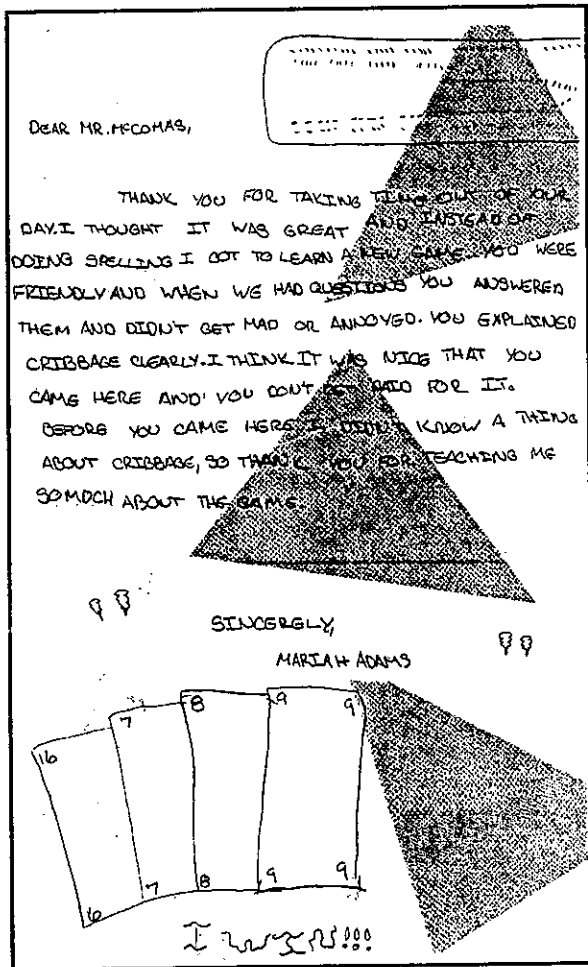 DEAR MR. MCCOMAS,
THANK YOU FOR TAKING TIME OUT OF OUR
DAY. I THOUGHT IT WAS GREAT AND INSTEAD OF
DOING SPELLING I GOT TO LEARN A NEW GAME. YOU WERE
FRIENDLY AND WHEN WE HAD QUESTIONS YOU ANSWERED
THEM AND DIDN'T GET MAD OR ANNOYED. YOU EXPLAINED
CRIBBAGE CLEARLY. I THINK IT WAS NICE THAT YOU
CAME HERE AND YOU DON'T GET PAID FOR IT.
BEFORE YOU CAME HERE I DIDN'T KNOW A THING
ABOUT CRIBBAGE, SO THANK YOU FOR TEACHING ME
SO MUCH ABOUT THE GAME.
SINCERELY,
MARIAH ADAMS
6 7 8 9 9
6 7 8 9 9
I